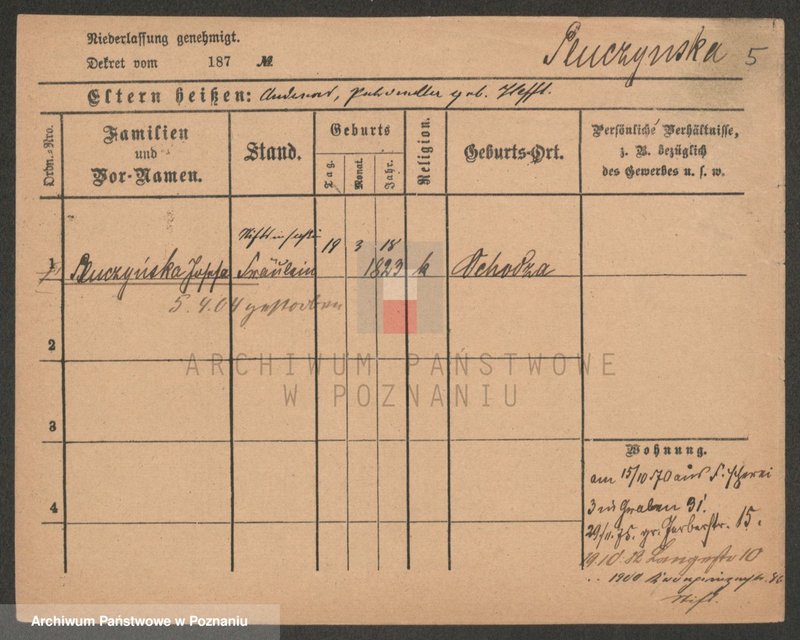 Niederlassung genehmigt.
Dekret vom 187 No.
Pluczynska 5
Eltern heißen:
Ordn.-Nro.
Familien
und
Vor-Namen.
Stand.
Geburts
Tag.
Monat.
Jahr.
Religion.
Geburts-Ort.
Persönliche Verhältnisse,
z. B. bezüglich
des Gewerbes u. s. w.
19 3 18
1 Pluczyńska Josefa Fräulein 1823 k Ochodza
5.4.04 gestorben
2
ARCHIWUM PAŃSTWOWE
W POZNANIU
3
4
Wohnung.
am 15/10 70 aus Fischerei
3 Graben 31.
29/11.75. gr. Gerberstr. 15.
19 10 82 Langestr 10
1900 Kronprinzenstr. 86
Stift.
Archiwum Państwowe w Poznaniu